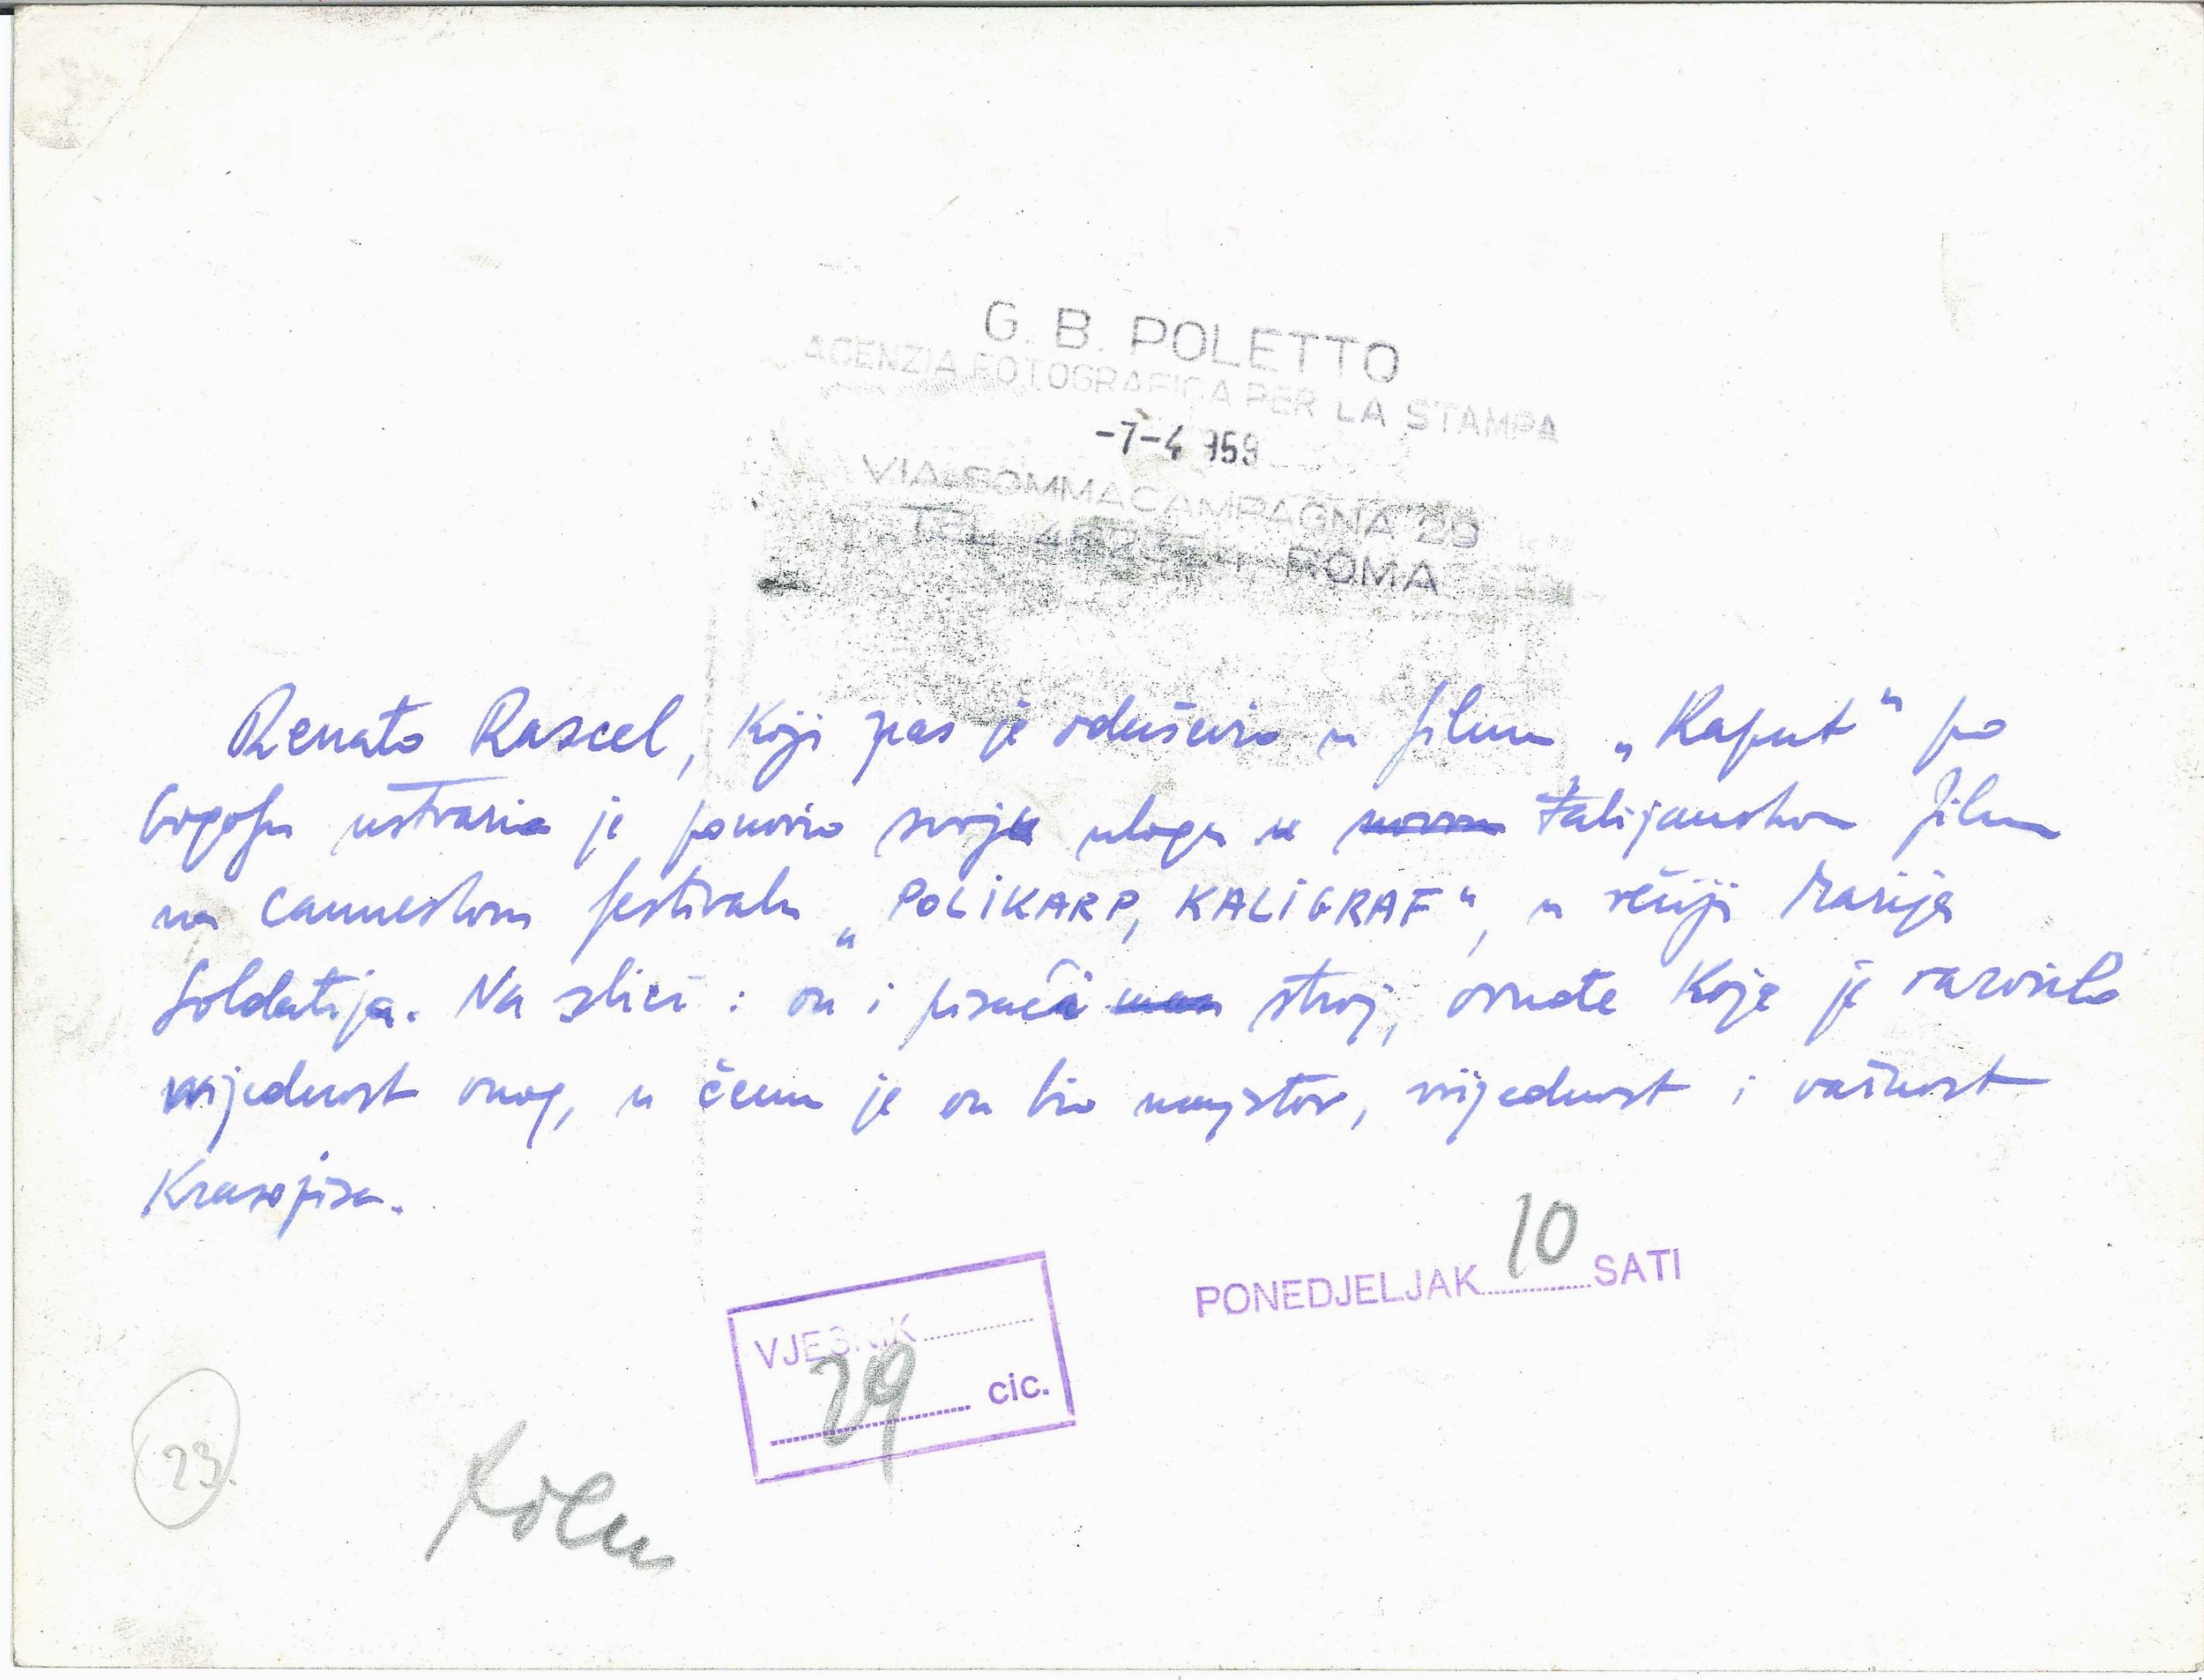 G. B. POLETTO
AGENZIA FOTOGRAFICA PER LA STAMPA
-7-4 959
VIA SOMMACAMPAGNA 29
TEL. ROMA
Renato Rascel, koji nas je oduševio u filmu „Kaput" po
Gogolju ustvari je ponovio svoju ulogu u talijanskom filmu
na canneskom festivalu „POLIKARP, KALIGRAF", u režiji Marija
Soldatija. Na slici: on i pisaći stroj, koje je razorilo
vrijednost onog, u čemu je on bio majstor, vrijednost i važnost
Krasopisa.
PONEDJELJAK 10 SATI
VJESNIK
29 cic.
23.